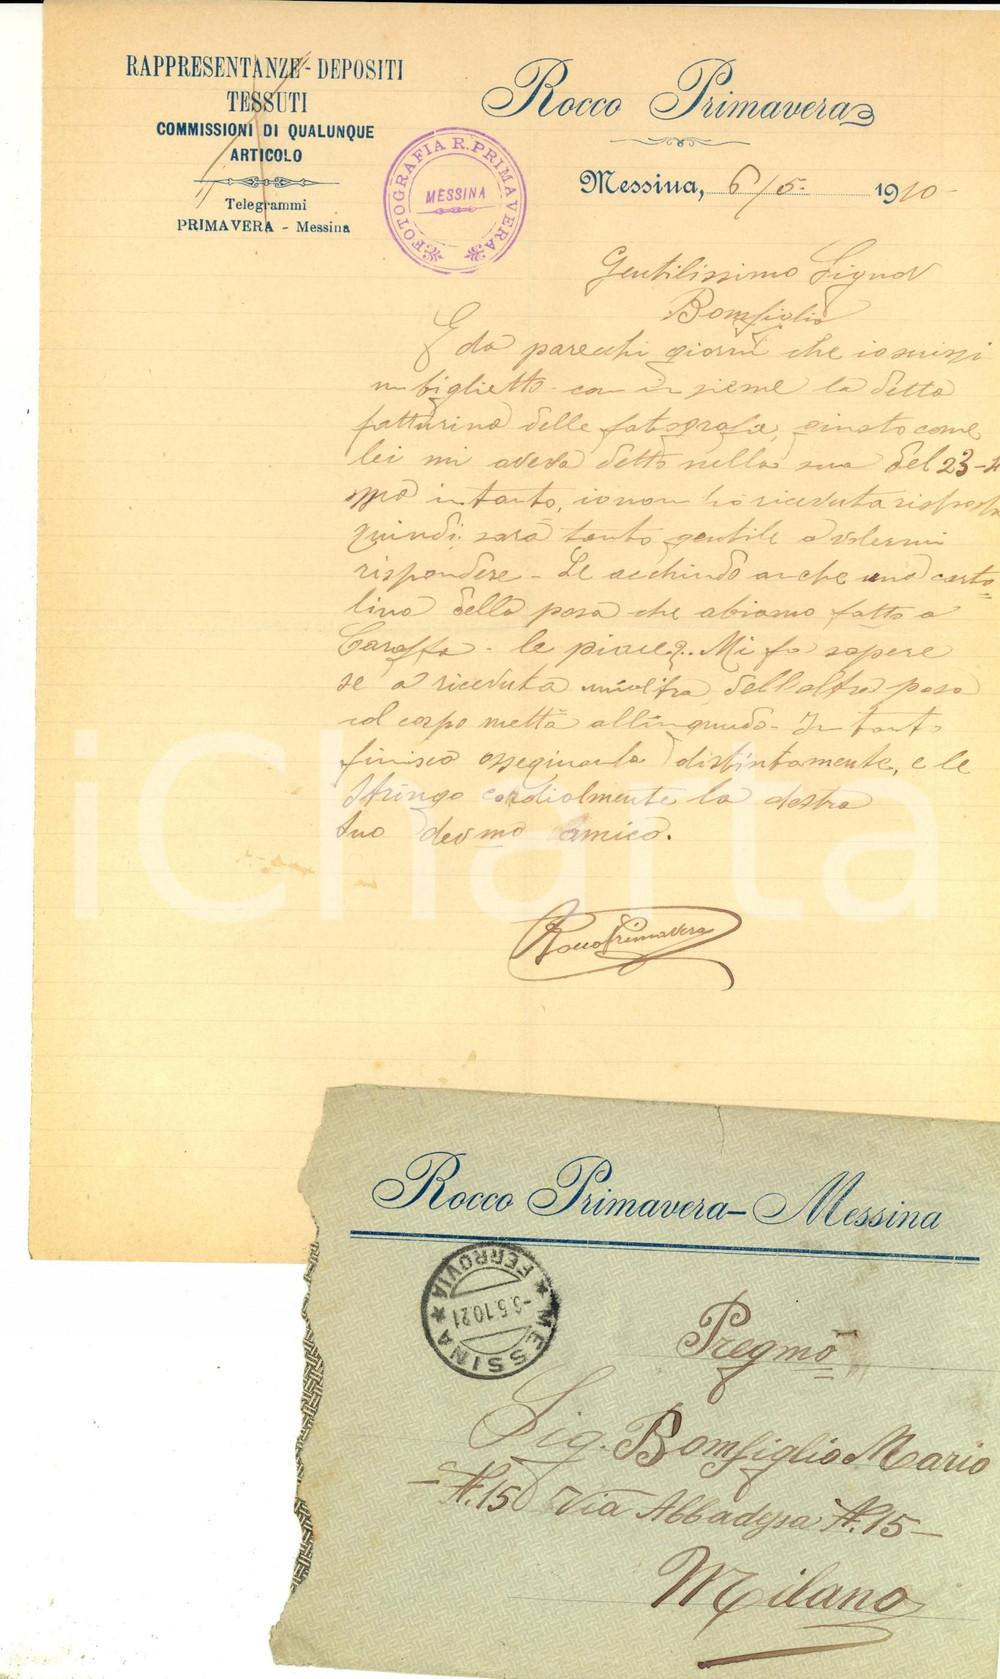 RAPPRESENTANZE - DEPOSITI
TESSUTI
COMMISSIONI DI QUALUNQUE
ARTICOLO
Telegrammi
PRIMAVERA - Messina
Rocco Primavera
FOTOGRAFIA R. PRIMAVERA
MESSINA
Messina, 6/5. 1910-
Gentilissimo Signor
Bomfiglio
E da parecchi giorni che io scrissi
un biglietto con insieme la detta
fatturina delle fotografie, giusto come
lei mi aveva detto nella sua del 23-4
ma intanto, io non ho ricevuta risposta
quindi sarà tanto gentile a volermi
rispondere - Le acchiudo anche una carto=
lina della posa che abiamo fatto a
Caraffa - le piace?. Mi fa sapere
se a ricevuta dell'altra posa
col corpo mettà all'inguudo. In tanto
finisco ossequiarla distintamente, e le
stringo cordialmente la destra
suo devmo amico.
Rocco Primavera
Rocco Primavera - Messina
MESSINA FERROVIA
-6.5.10.21
Pregmo
Sig. Bomfiglio Mario
- N. 15 Via Abbadessa N. 15 -
Milano
iCharta